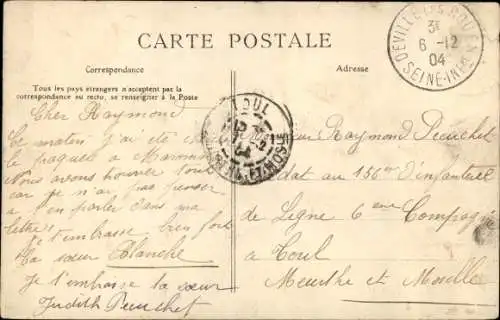 CARTE POSTALE
Correspondance
Adresse
Tous les pays étrangers n'acceptent pas la
correspondance au recto, se renseigner à la Poste
DEVILLE LES ROUEN
3E
6 -12
04
SEINE-INFRE
TOUL
MEURTHE-ET-MOSELLE
Cher Raymond
Ce matin j'ai été
le paquet a Maromme
Nous avons
car je n'ai pas
a t'en parler dans ma
lettre
Je t'embrasse bien fort
Ta sœur Blanche
Je t'embrasse ta sœur
Judith Peuchet
Raymond Peuchet
dat au 156me d'infanterie
de Ligne 6eme Compagnie
a Toul
Meurthe et Moselle